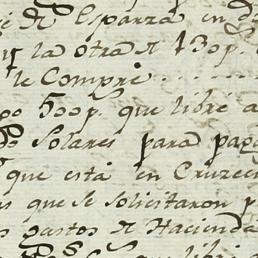 de Esparza en
y la otra de 130p.
le Compré
500p. que libré a
Solares para pag
que está en Cruze
que se solicitaron p
gastos de Hacienda